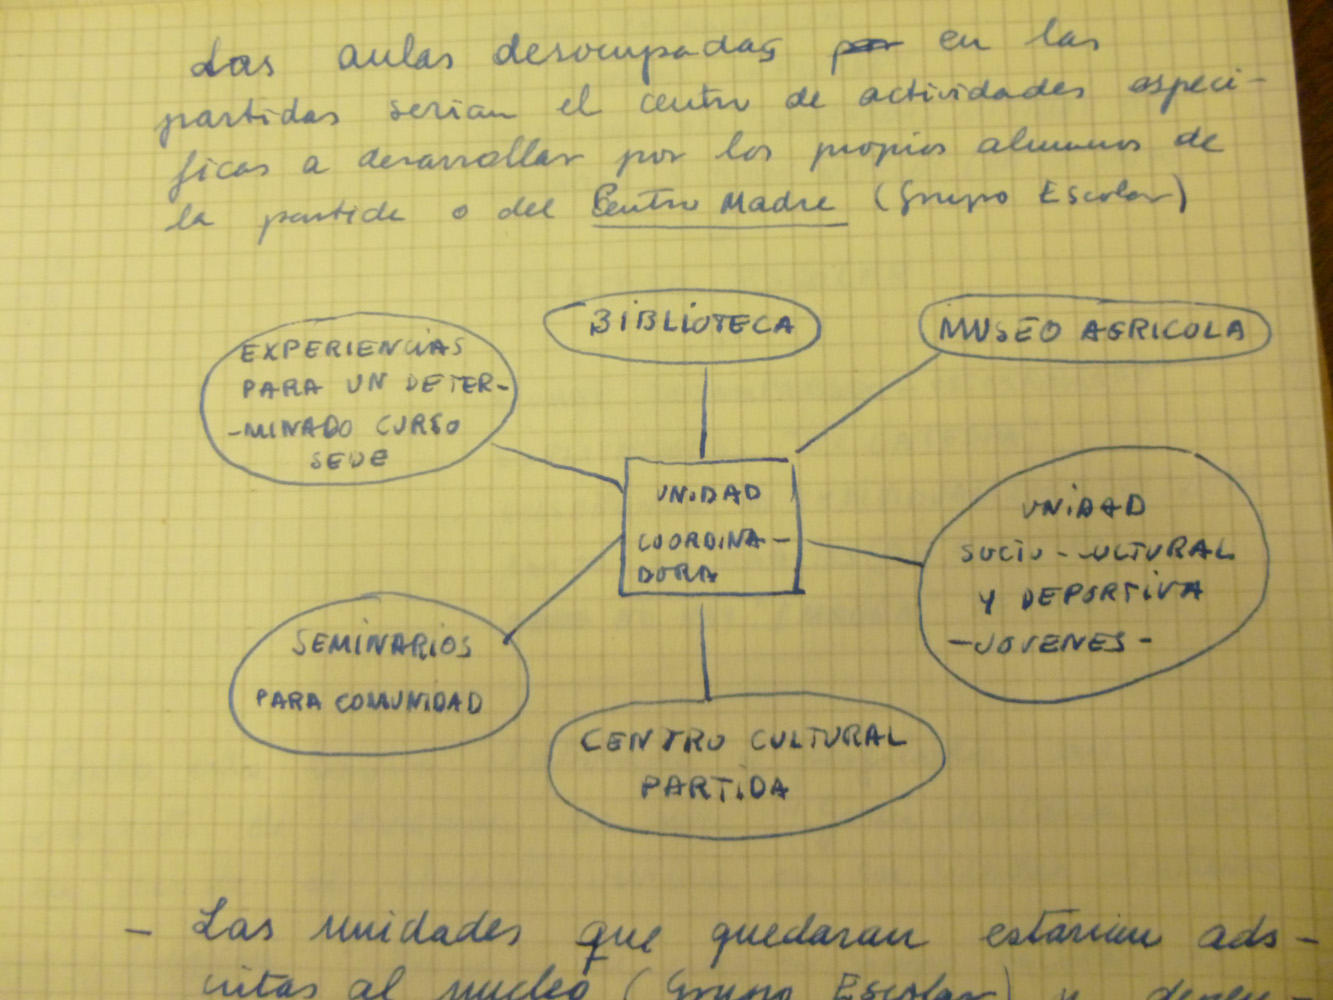 Las aulas desocupadas por en las
partidas serian el centro de actividades especi-
ficas a desarrollar por los propios alumnos de
la partida o del Centro Madre (Grupo Escolar)
BIBLIOTECA
MUSEO AGRICOLA
EXPERIENCIAS
PARA UN DETER-
-MINADO CURSO
SEDE
UNIDAD
COORDINA-
DORA
UNIDAD
SOCIO-CULTURAL
Y DEPORTIVA
-JOVENES-
SEMINARIOS
PARA COMUNIDAD
CENTRO CULTURAL
PARTIDA
- Las unidades que quedaran estarian ads-
critas al nucleo (Grupo Escolar) y